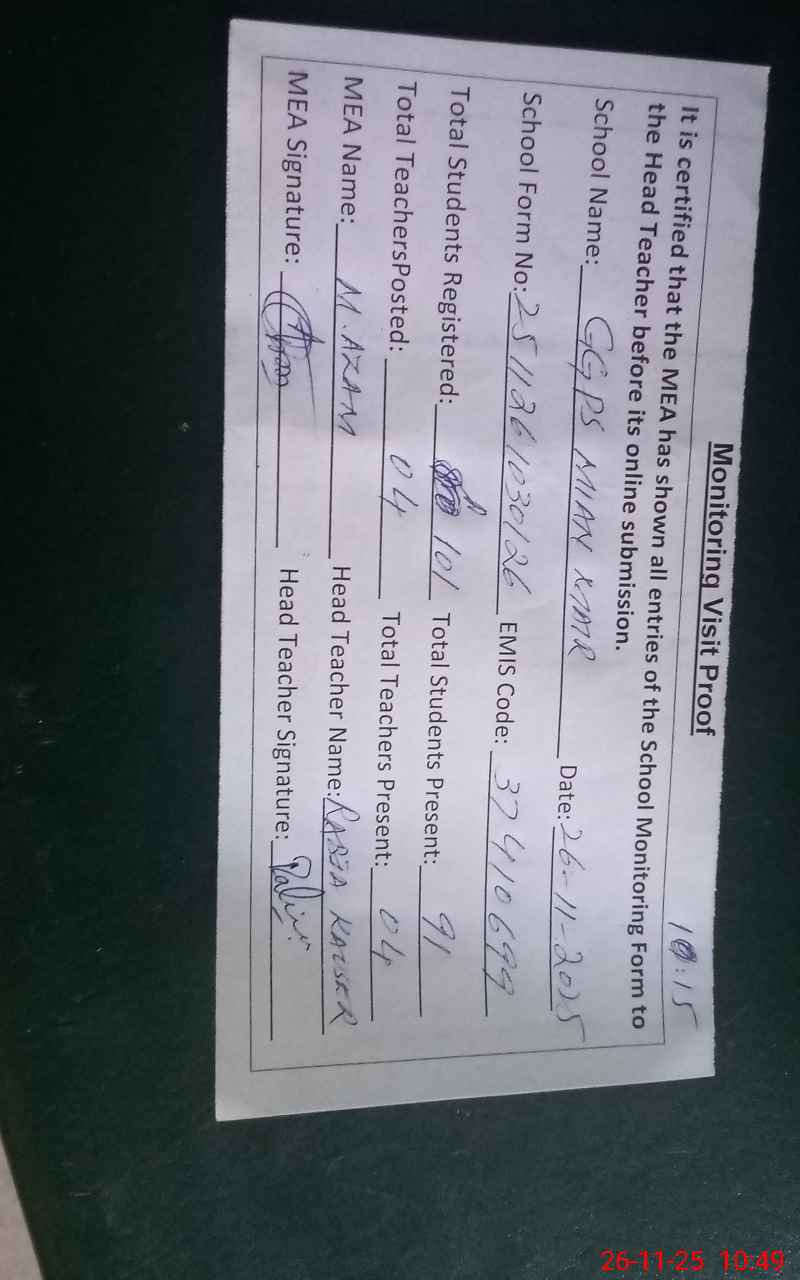 Monitoring Visit Proof
10:15
It is certified that the MEA has shown all entries of the School Monitoring Form to
the Head Teacher before its online submission.
School Name: GGPS MIAN Date: 26-11-2025
School Form No: 2511261030126 EMIS Code: 37410699
Total Students Registered: 101 Total Students Present: 91
Total TeachersPosted: 04 Total Teachers Present: 04
MEA Name: M. AZAM Head Teacher Name: RABIA KAUSER
MEA Signature: Head Teacher Signature:
26-11-25 10:49